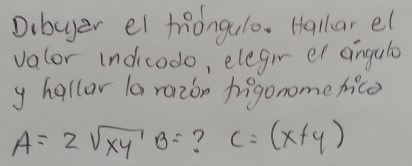 Dibujar el triángulo. Hallar el
valor indicado, elegir el ángulo
y hallar la razón trigonometrica
A = 2 √xy B = ? C = (x+y)